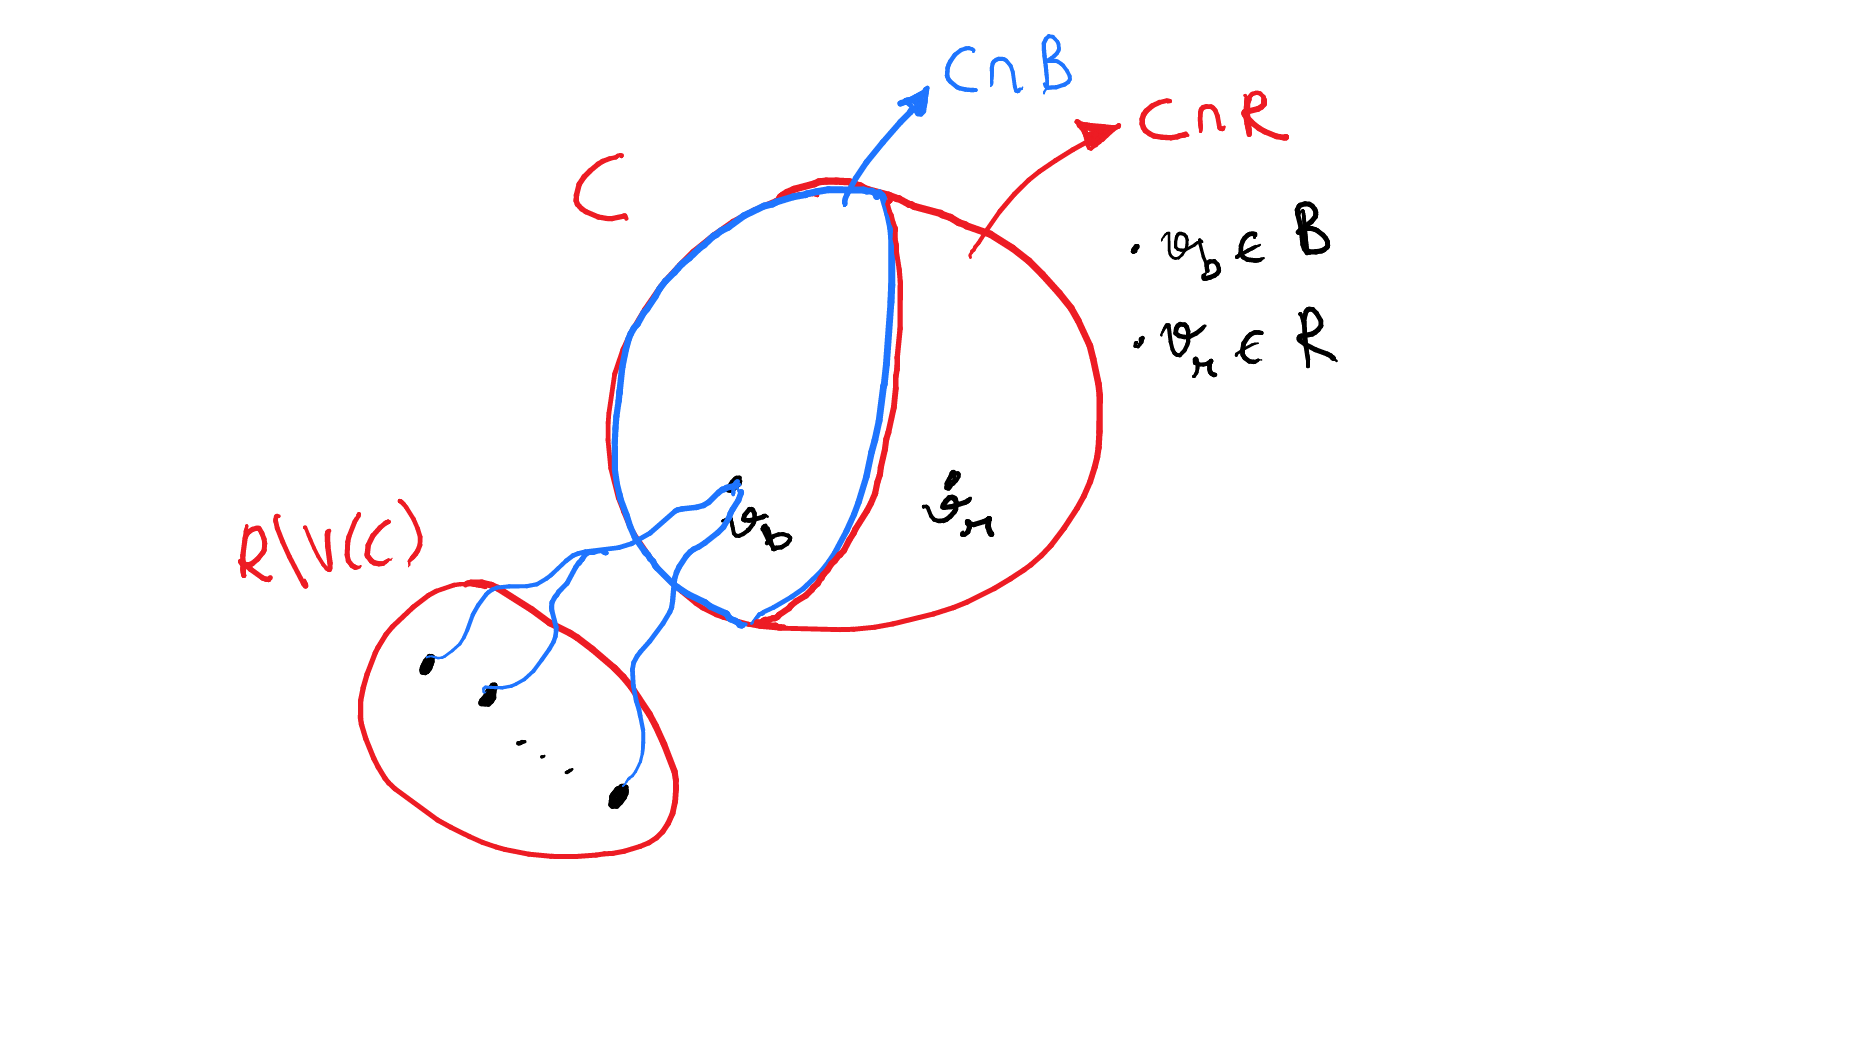 C∩B
C∩R
C
· v_b ∈ B
· v_r ∈ R
v_b
v_r
R\V(C)
...